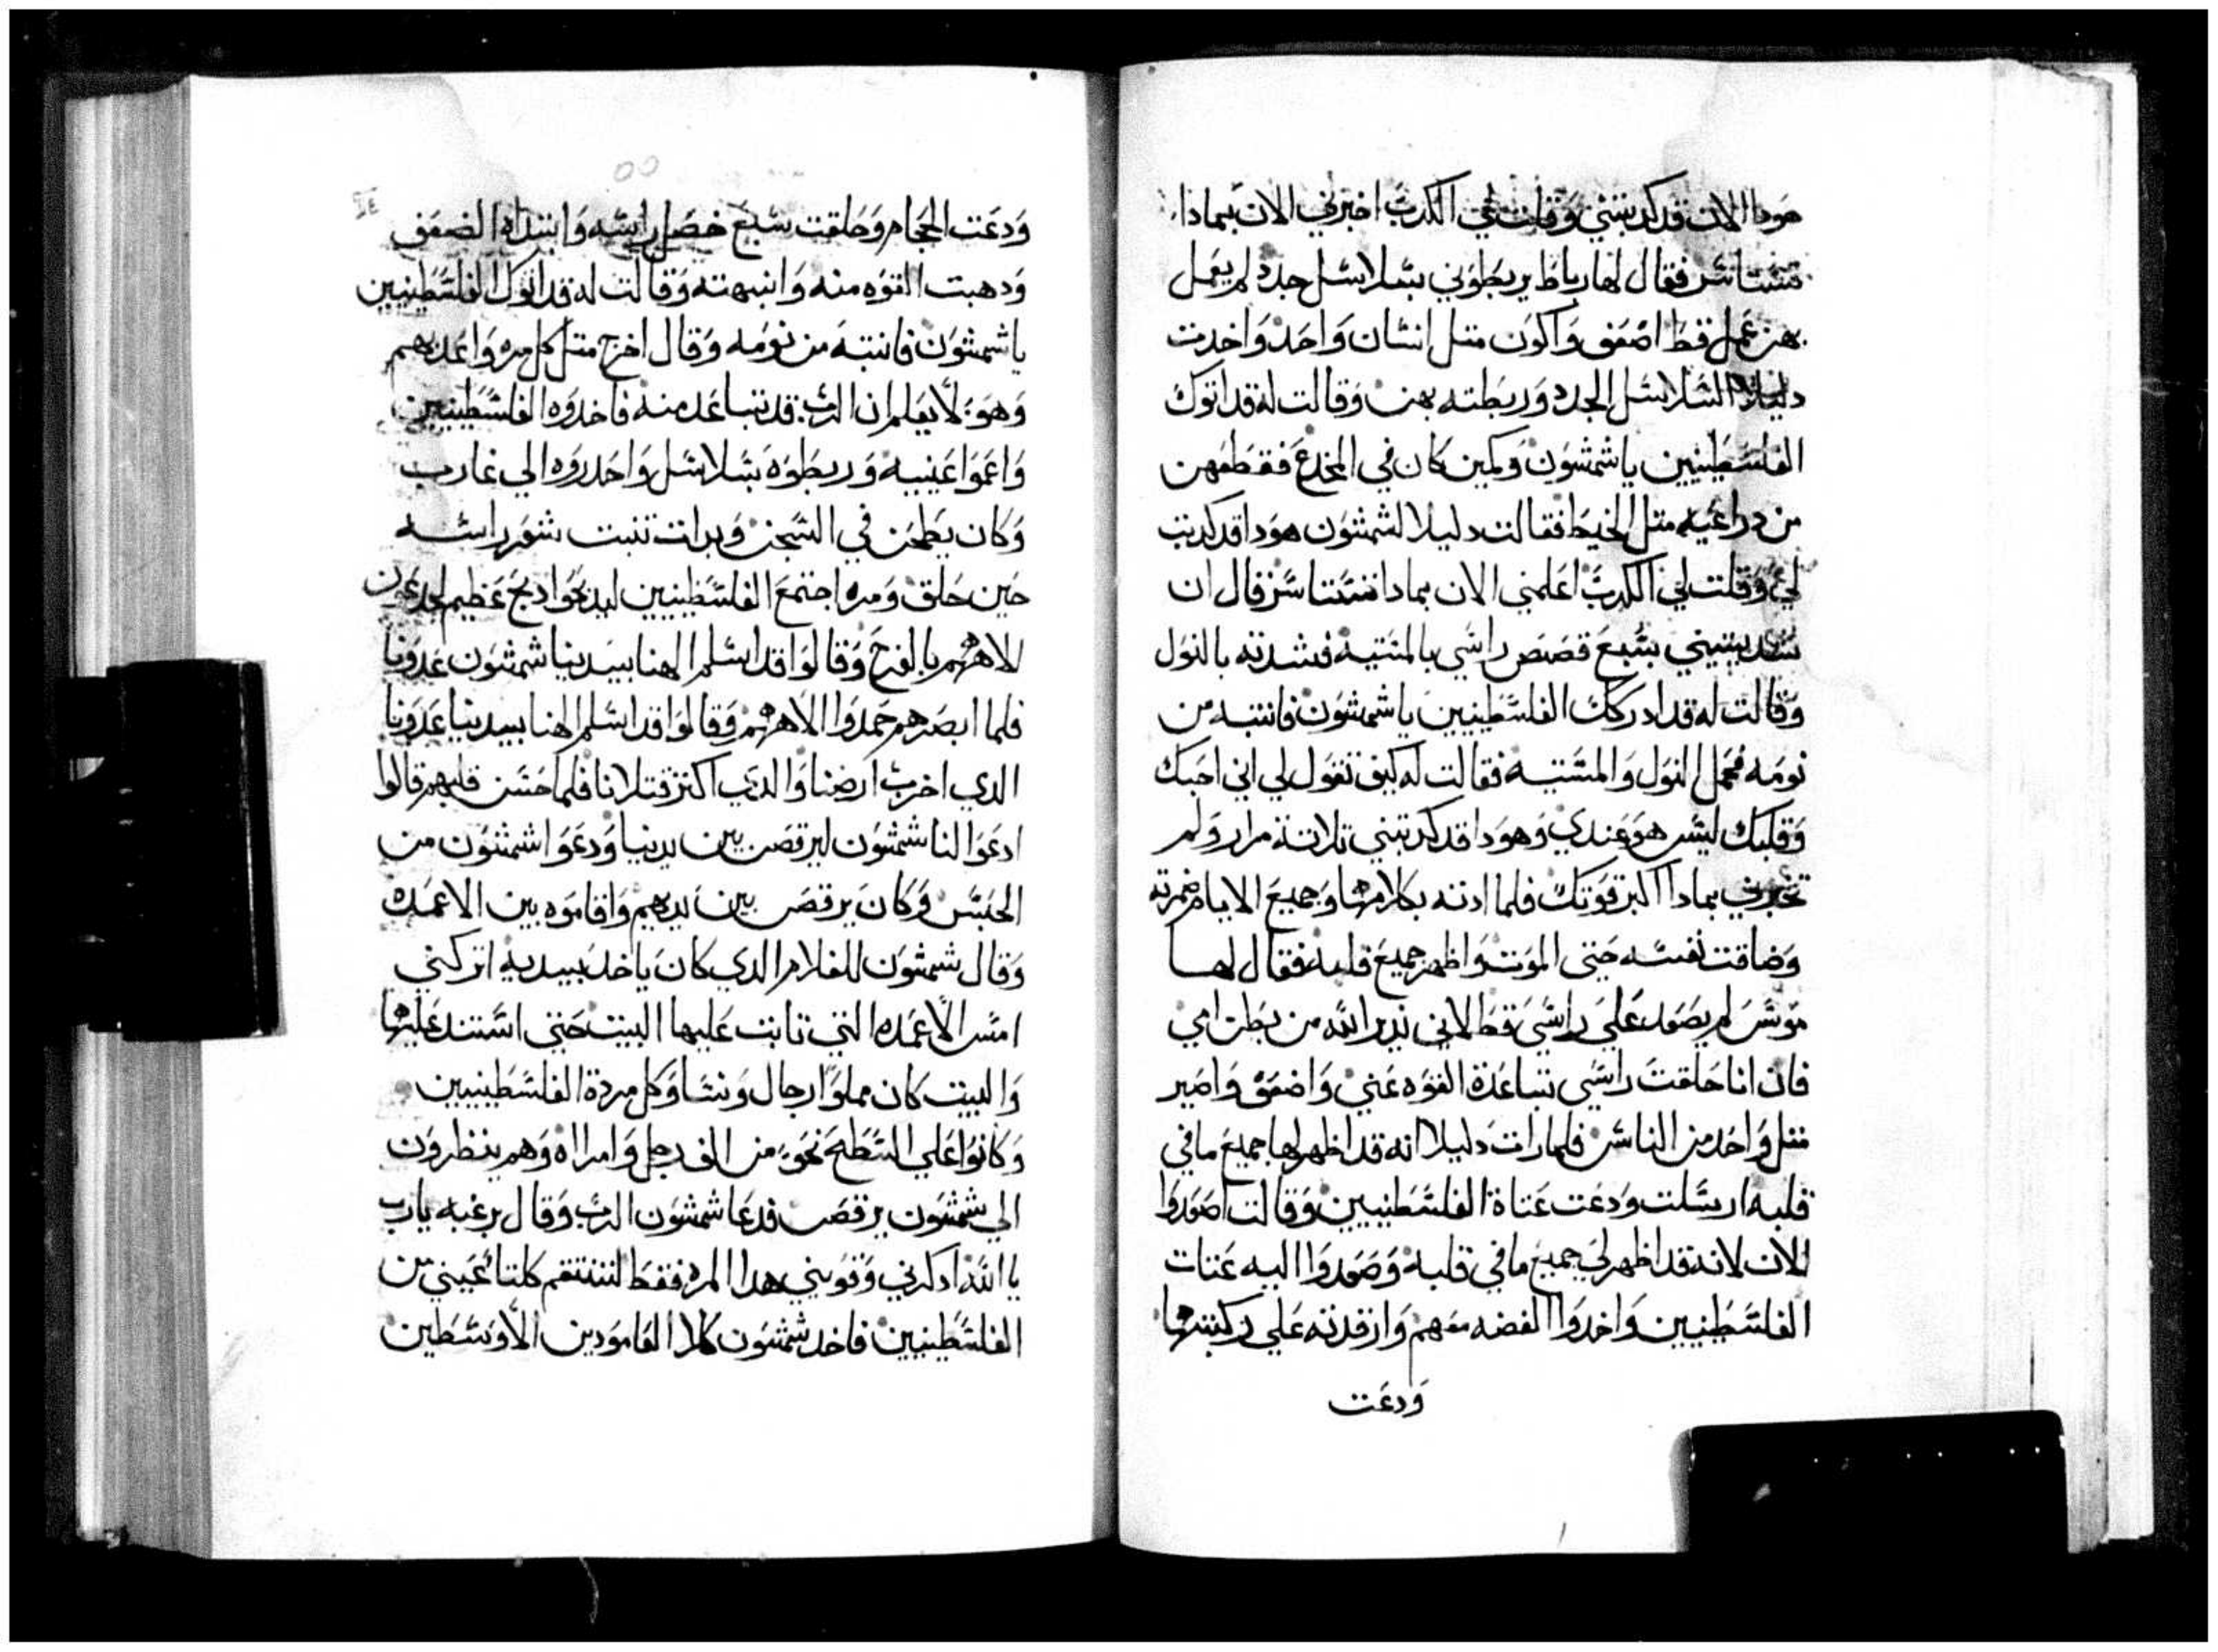 هودا الان قد كدبتني وقلت لي الكدب اخبرني الان بمادا
تستاسر فقال لها رباط يربطوني بسلاسل جدد لم يعمل
بهن عمل قط اضعف واكون متل انسان واحد واخدت
دليلا السلاسل الجدد وربطته بهن وقالت له قد اتوك
الفلسطينيين ياشمشون وكمين كان في المخدع فقطعهن
من دراعيه متل الخيط فقالت دليلا لشمشون هودا قد كدبت
لي وقلت لي الكدب اعلمني الان بمادا تستاسر قال ان
سديتيني بسبع قصص راسي بالمستيه فشدته بالنول
وقالت له قد ادركك الفلسطينيين ياشمشون فانتبه من
نومه فحمل النول والمستيه فقالت له كيف تقول لي اني احبك
وقلبك ليس هو عندي وهودا قد كدبتني تلاتة مرار ولم
تخبرني بمادا اكبر قوتك فلما ادته بكلامها وجميع الايام ضمرته
وضاقت نفسه حتي الموت واظهر جميع قلبه فقال لها
موس لم يصعد علي راسي قط لاني ندير الله من بطن امي
فان انا حلقت راسي تباعدة القوه عني واضعف واصير
متل واحد من الناس فلما رات دليلا انه قد اظهر لها جميع مافي
قلبه ارسلت ودعت عتاة الفلسطينيين وقالت اصعدوا
الان لانه قد اظهر لي جميع مافي قلبه وصعدوا اليه عتات
الفلسطينيين واخدوا الفضه معهم وارقدته علي ركبتها
ودعت
ودعت الحجام وحلقت سبع خصل راسه وابتداه الضعف
ودهبت القوه منه وانبهته وقالت له قد اتوك الفلسطينيين
ياشمشون فانتبه من نومه وقال اخرج متل كل مره واعد بهم
وهو لا يعلم ان الرب قد تباعد منه فاخدوه الفلسطينيين
واعموا عينيه وربطوه بسلاسل واحدروه الي غارب
وكان يطحن في السجن وبدات تنبت شعر راسه
حين حلق ومره اجتمع الفلسطينيين ليدبحوا دبح عظيم لجدعون
الاههم بالفرح وقالوا قد اسلم الهنا بيدينا شمشون عدونا
فلما ابصرهم حمدوا الاههم وقالوا قد اسلم الهنا بيدينا عدونا
الدي اخرب ارضنا والدي اكتر قتلانا فلما حسن قلبهم قالوا
ادعوا لنا شمشون ليرقص بين يدينا ودعوا شمشون من
الحبس وكان يرقص بين يديهم واقاموه بين الاعمده
وقال شمشون للغلام الدي كان ياخد بيديه اتركني
امس الاعمده التي تابت عليها البيت حتي استند عليها
والبيت كان مملوا رجال ونسا وكل مردة الفلسطينيين
وكانوا علي السطح نحو من الف رجل وامراه وهم ينظرون
الي شمشون يرقص فدعا شمشون الرب وقال برغبه يارب
يا الله ادكرني وقويني هدا المره فقط لننتقم كلتا عيني من
الفلسطينيين فاخد شمشون كلا العامودين الاوسطين